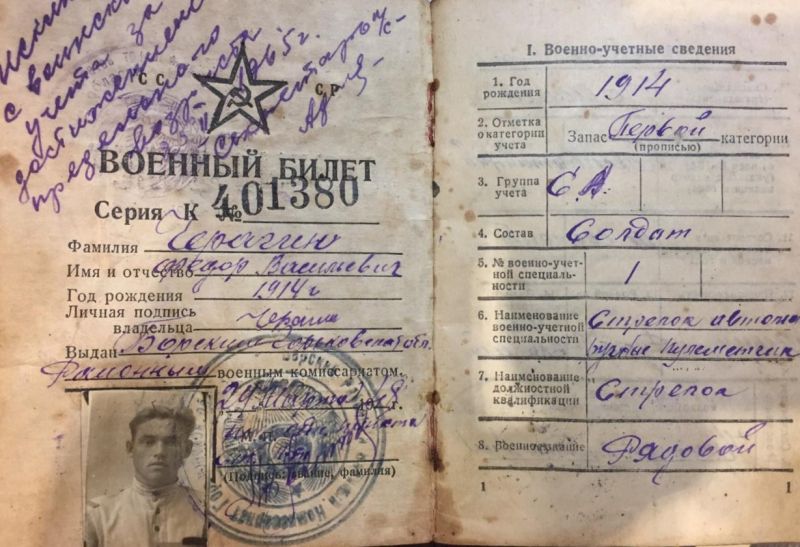 с воинского
учета за
достижением
предельного
возраста
1965 г.
С С С Р
ВОЕННЫЙ БИЛЕТ
Серия К № 401380
Фамилия Черагин
Имя и отчество Федор Васильевич
Год рождения 1914 г
Личная подпись
владельца
Выдан Борским Горьковской обл.
Районным военным комиссариатом.
(Подпись, звание, фамилия)
I. Военно-учетные сведения
1. Год рождения 1914
2. Отметка о категории учета Запас Первой категории
(прописью)
3. Группа учета С А.
4. Состав Солдат
5. № военно-учетной специальности 1
6. Наименование военно-учетной специальности Стрелок автомат
ручные пулеметчик
7. Наименование должностной квалификации Стрелок
8. Военное звание Рядовой
1
1